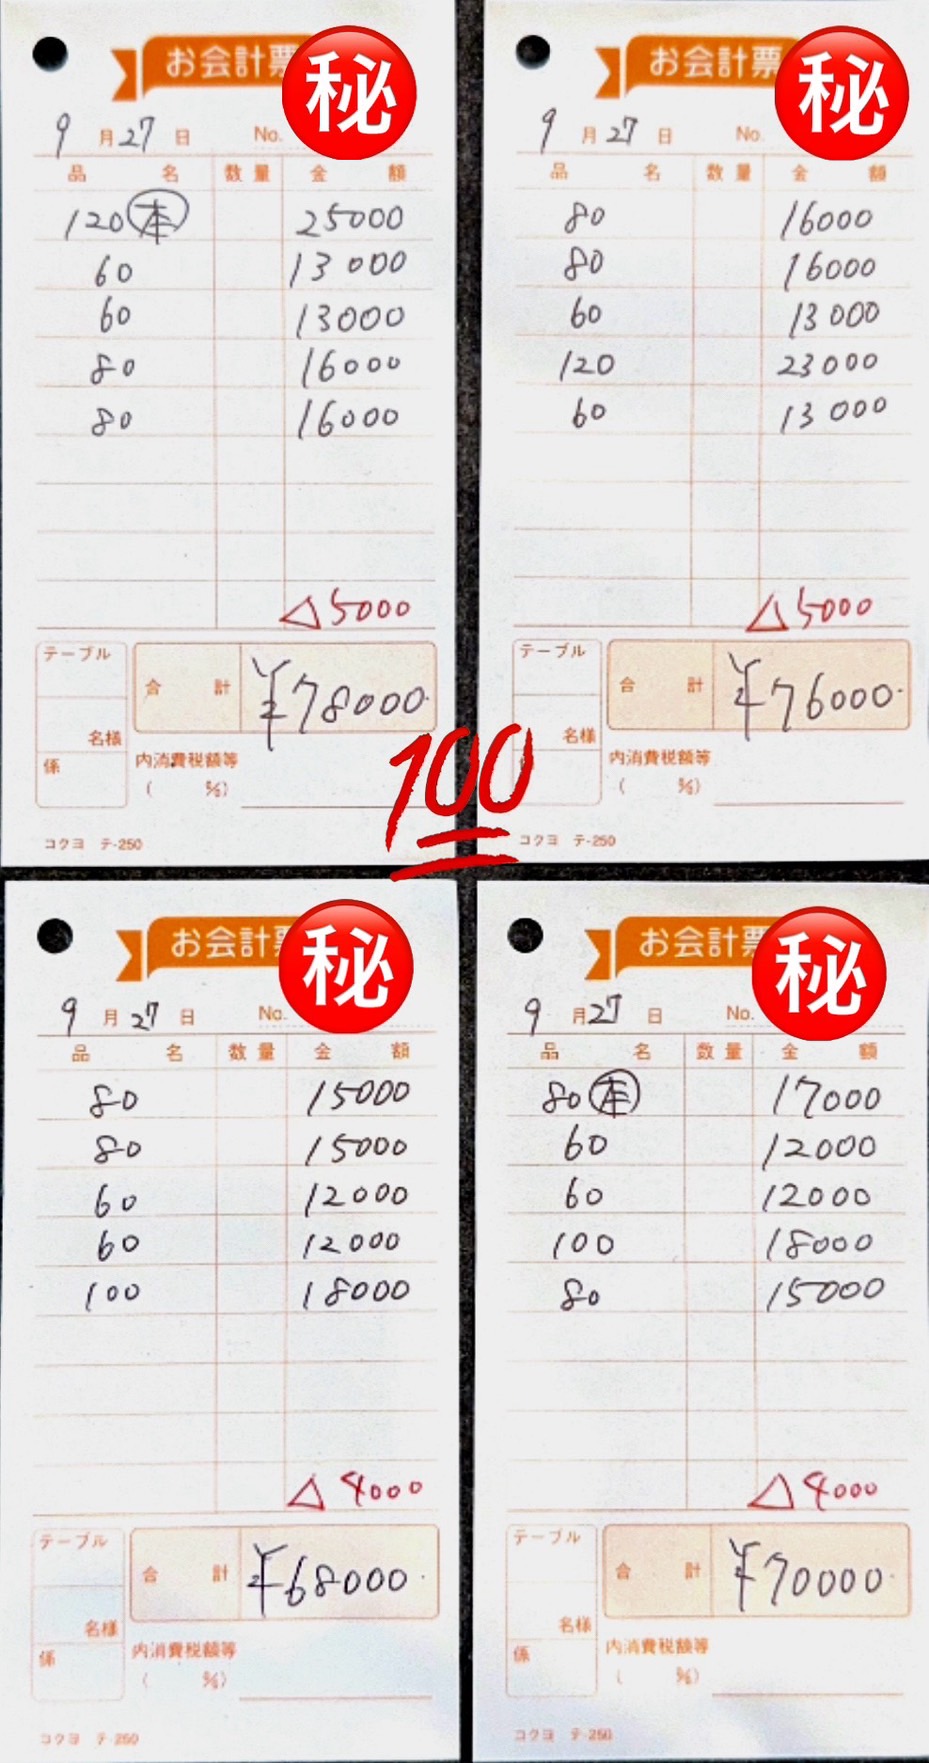 お会計票
秘
9月27日 No.
品名 数量 金額
120 本 25000
60 13000
60 13000
80 16000
80 16000
△5000
テーブル
合計 ¥78000.
名様
係
内消費税額等
( %)
コクヨ テ-250
お会計票
秘
9月27日 No.
品名 数量 金額
80 16000
80 16000
60 13000
120 23000
60 13000
△5000
テーブル
合計 ¥76000.
名様
係
内消費税額等
( %)
コクヨ テ-250
100
お会計票
秘
9月27日 No.
品名 数量 金額
80 15000
80 15000
60 12000
60 12000
100 18000
△4000
テーブル
合計 ¥68000.
名様
係
内消費税額等
( %)
コクヨ テ-250
お会計票
秘
9月27日 No.
品名 数量 金額
80 本 17000
60 12000
60 12000
100 18000
80 15000
△4000
テーブル
合計 ¥70000.
名様
係
内消費税額等
( %)
コクヨ テ-250